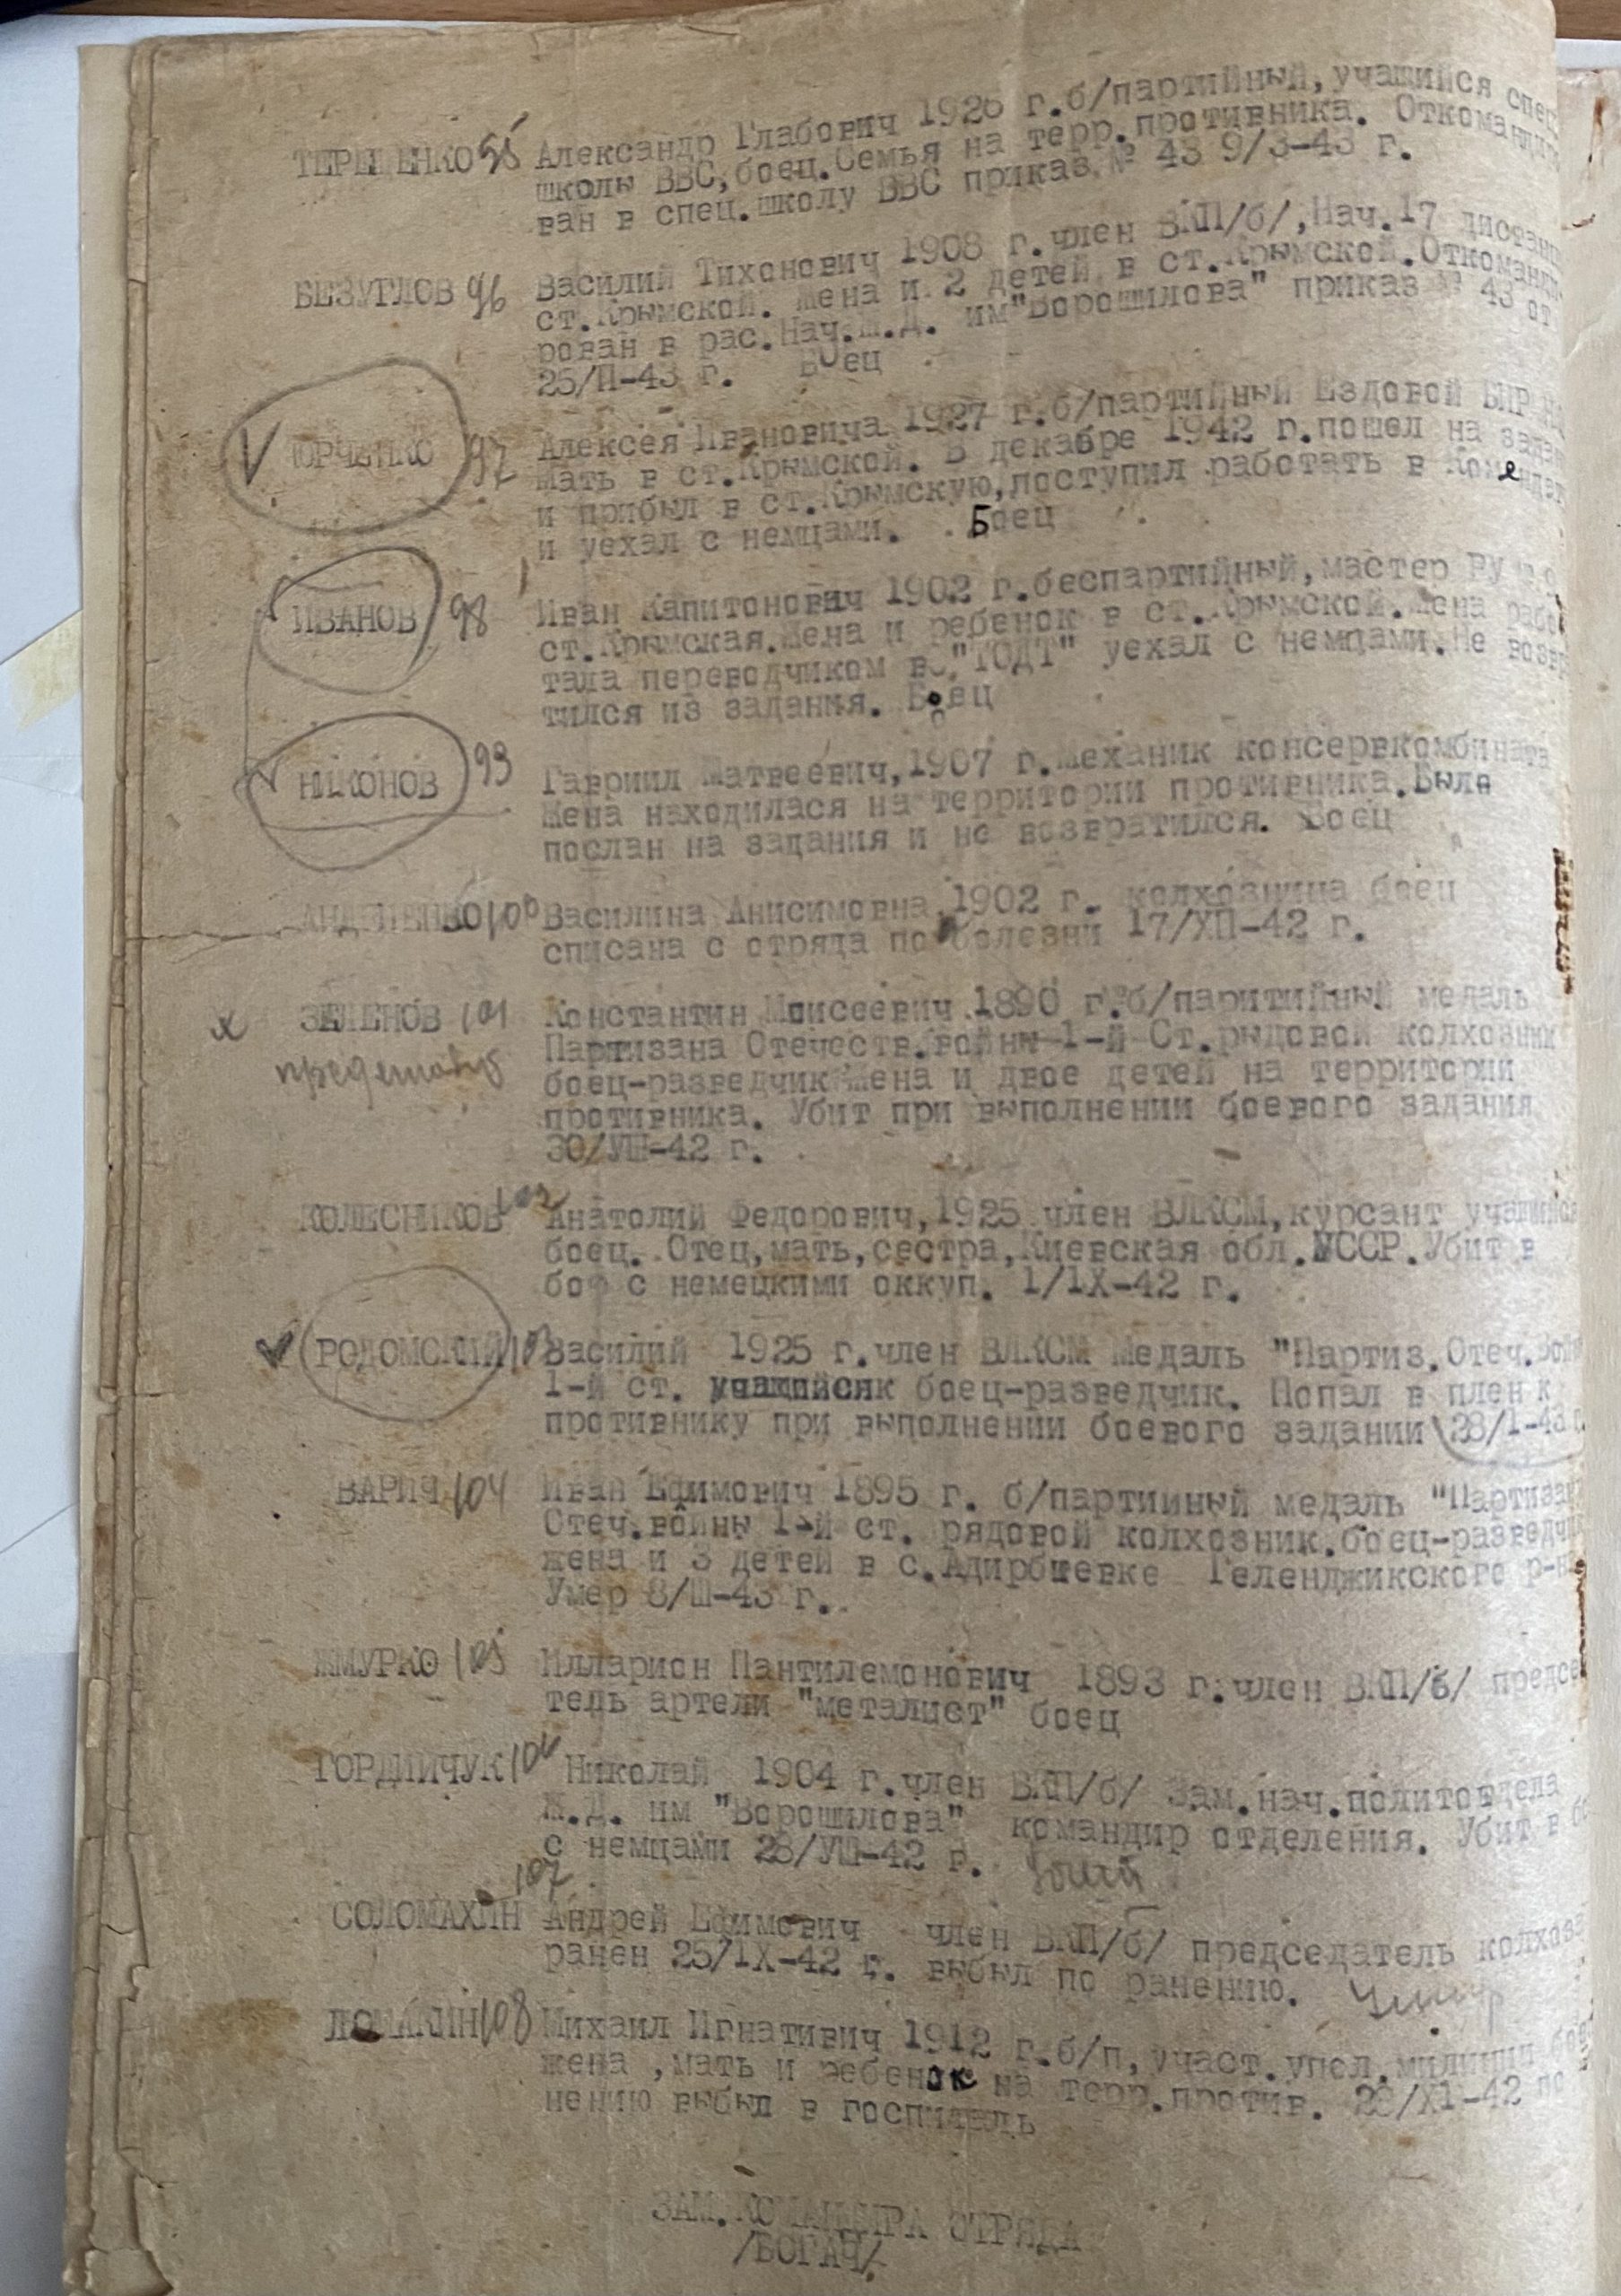 ТЕРЕЩЕНКО 95 Александр Глабович 1926 г.б/партийный, учащийся спец.
школы ВВС, боец. Семья на терр. противника. Откомандиро
ван в спец. школу ВВС приказ № 43 9/3-43 г.
БЕЗУГЛОВ 96 Василий Тихонович 1908 г. член ВКП/б/, Нач. 17 дистанц
ст. Крымской. Жена и 2 детей в ст. Крымской. Откоманди-
рован в рас. Нач. Ж.Д. им "Ворошилова" приказ № 43 от
25/П-43 г. Боец
V ЮРЧЕНКО 97 Алексея Ивановича 1927 г.б/партийный Ездовой
Мать в ст. Крымской. В декабре 1942 г. пошел на задан
и прибыл в ст. Крымскую, поступил работать в Комендат
и уехал с немцами. Боец
ИВАНОВ 98 Иван Капитонович 1902 г. беспартийный, мастер
ст. Крымская. Жена и ребенок в ст. Крымской. Жена рабо
тала переводчиком в "ТОДТ" уехал с немцами. Не возвра
тился из задания. Боец
V НИКОНОВ 99 Гавриил Матвеевич, 1907 г. Механик консервкомбината
Жена находилася на территории противника. Были
послан на задания и не возвратился. Боец
100 Василина Анисимовна 1902 г. колхозница боец
списана с отряда по болезни 17/ХП-42 г.
х ЗЕЛЕНОВ 101 Константин Моисеевич 1890 г. б/паритийный медаль
Партизана Отечеств. войны 1-й Ст. рыдовой колхозник
боец-разведчик Жена и двое детей на территории
противника. Убит при выполнении боевого задания
30/УШ-42 г.
КОЛЕСНИКОВ 102 Анатолий Федорович, 1925 член ВЛКСМ, курсант учащийся
боец. Отец, мать, сестра, Киевская обл. УССР. Убит в
бою с немецкими оккуп. 1/1Х-42 г.
V РОДОМСКИЙ 103 Василий 1925 г. член ВЛКСМ Медаль "Партиз. Отеч. Вой
1-й ст. учащийсяк боец-разведчик. Попал в плен к
противнику при выполнении боевого задании 28/1-43 г.
ВАРИЧ 104 Иван Ефимович 1895 г. б/партийный медаль "Партизан
Отеч. войны 1-й ст. рядовой колхозник. боец-разведчи
жена и 3 детей в с. Адирбшевке Геленджикского р-на
Умер 8/Ш-43 г.
ЖМУРКО 105 Илларион Пантилемонович 1893 г. член ВКП/б/ предсе
тель артели "металист" боец
ГОРДИЙЧУК 106 Николай 1904 г. член ВКП/б/ Зам. нач. политотдела
Ж.Д. им "Ворошилова" командир отделения. Убит в бо
с немцами 28/УШ-42 г.
107
СОЛОМАХИН Андрей Ефимович член ВКП/б/ председатель колхоза
ранен 25/1Х-42 г. выбыл по ранению.
ЛОМАКИН 108 Михаил Игнативич 1912 г. б/п, участ. упол. милиции бо
жена, мать и ребенок на терр. против. 28/Х1-42 по
нению выбыл в госпиталь
ЗАМ. КОМАНДИРА ОТРЯДА
/БОГАЧ/.